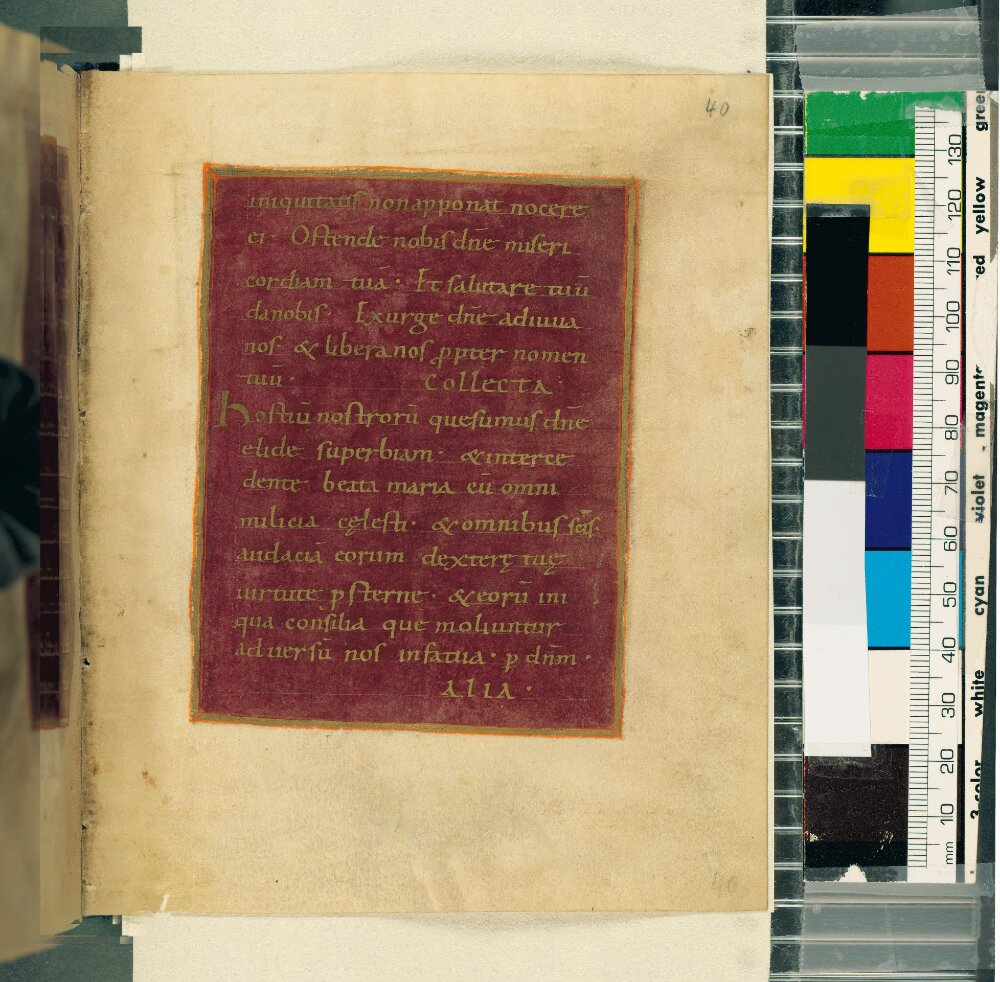 40
iniquitatis non apponat nocere
ei · Ostende nobis dñe miseri
cordiam tuā · Et salutare tuū
da nobis · Exurge dñe adiuua
nos · & libera nos ꝓpter nomen
tuū · Collecta ·
hostiū nostrorū quesumus dñe
elide superbiam · & interce
dente beata maria cū omni
milicia cęlesti · & omnibus scīs ·
audaciā eorum dexterę tuę
uirtute ꝓsterne · & eorū ini
qua consilia que moliuntur
aduersū nos infatua · ꝑ dnm̄ ·
Alia ·
40
130
120
110
100
90
80
70
60
50
40
30
20
10
mm
3-color white cyan violet magenta red yellow gree